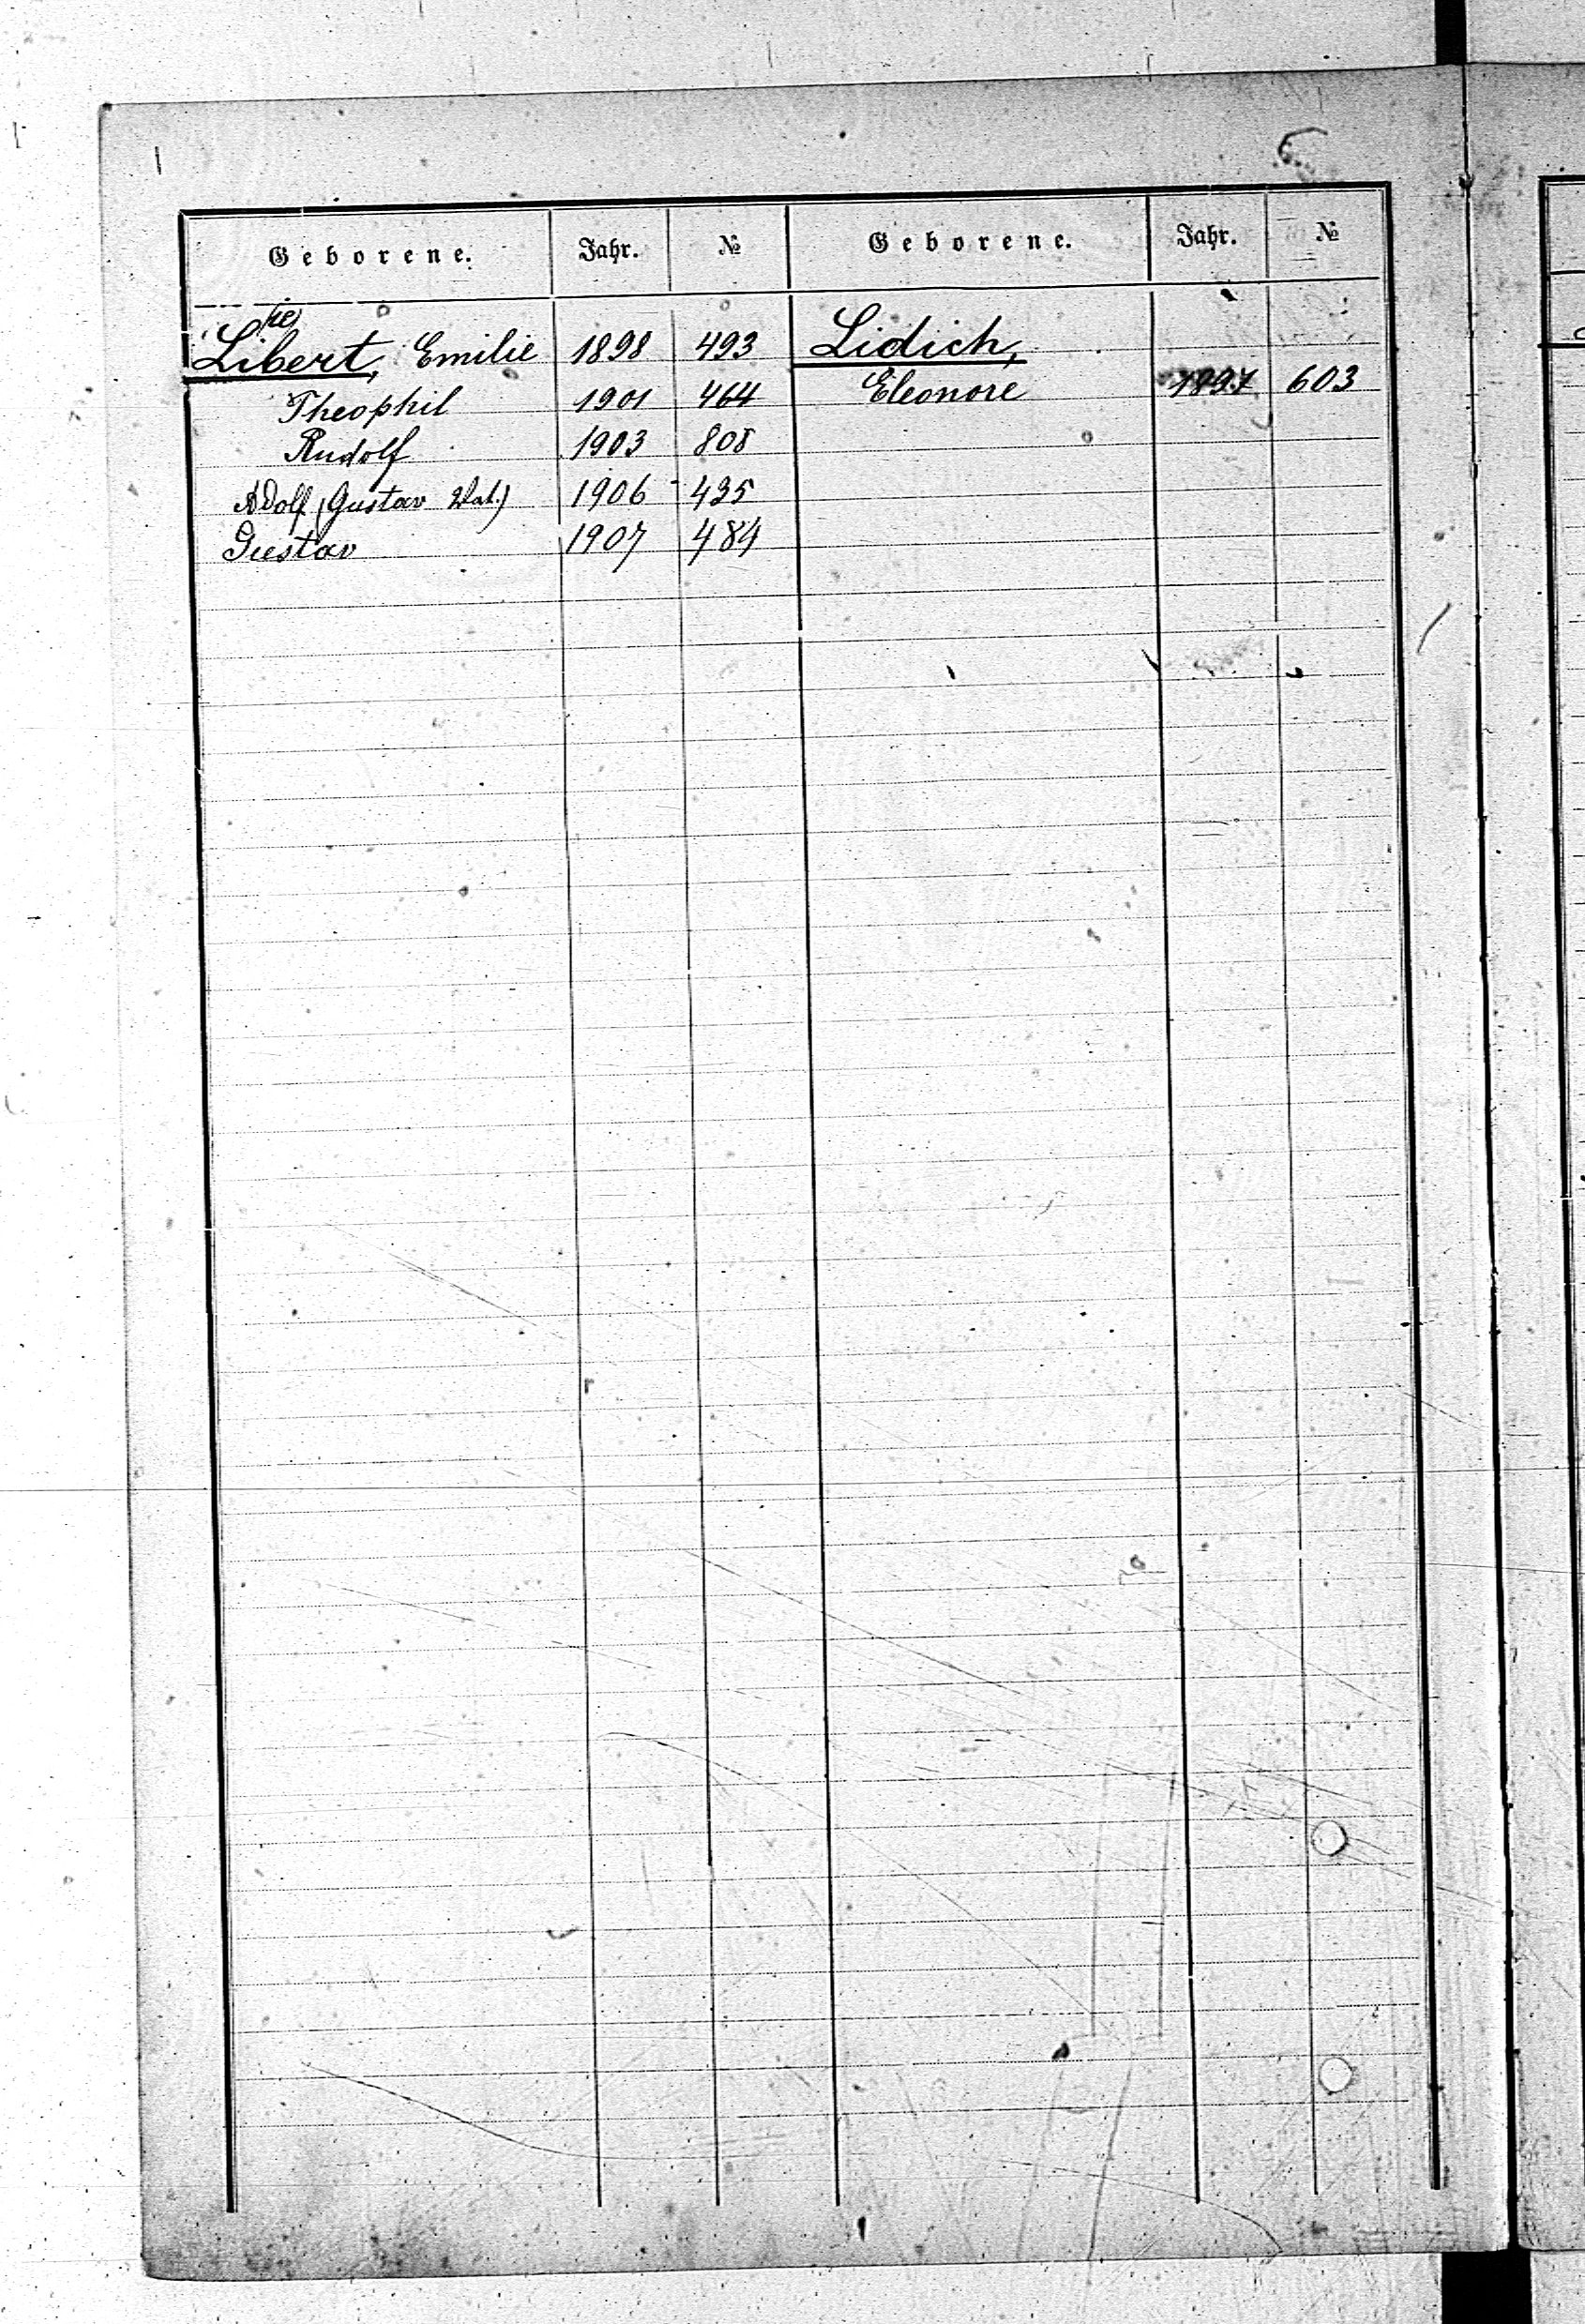 Geborene. Jahr. № Geborene. Jahr. №
(ie)
Libert, Emilie 1898 493 Lidich,
Theophil 1901 464 Eleonore 1897 603
Rudolf 1903 808
Adolf (Gustav Vat.) 1906 435
Gustav 1907 484